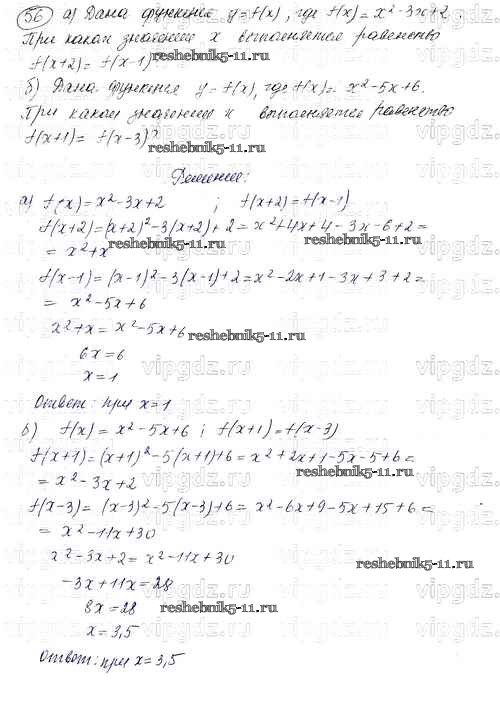 56) а) Дана функция y = f(x), где f(x) = x² - 3x + 2.
При каком значении x выполняется равенство
f(x+2) = f(x-1)?
reshebnik5-11.ru
б) Дана функция y = f(x), где f(x) = x² - 5x + 6.
При каком значении x выполняется равенство
f(x+1) = f(x-3)?
reshebnik5-11.ru
Решение:
а) f(x) = x² - 3x + 2 ; f(x+2) = f(x-1)
f(x+2) = (x+2)² - 3(x+2) + 2 = x² + 4x + 4 - 3x - 6 + 2 =
reshebnik5-11.ru reshebnik5-11.ru
= x² + x
f(x-1) = (x-1)² - 3(x-1) + 2 = x² - 2x + 1 - 3x + 3 + 2 =
= x² - 5x + 6
x² + x = x² - 5x + 6
reshebnik5-11.ru
6x = 6
x = 1
Ответ: при x = 1
reshebnik5-11.ru
б) f(x) = x² - 5x + 6 ; f(x+1) = f(x-3)
f(x+1) = (x+1)² - 5(x+1) + 6 = x² + 2x + 1 - 5x - 5 + 6 =
reshebnik5-11.ru
= x² - 3x + 2
f(x-3) = (x-3)² - 5(x-3) + 6 = x² - 6x + 9 - 5x + 15 + 6 =
reshebnik5-11.ru
= x² - 11x + 30
x² - 3x + 2 = x² - 11x + 30
reshebnik5-11.ru
-3x + 11x = 28
8x = 28
reshebnik5-11.ru
x = 3,5
Ответ: при x = 3,5
vipgdz.ru